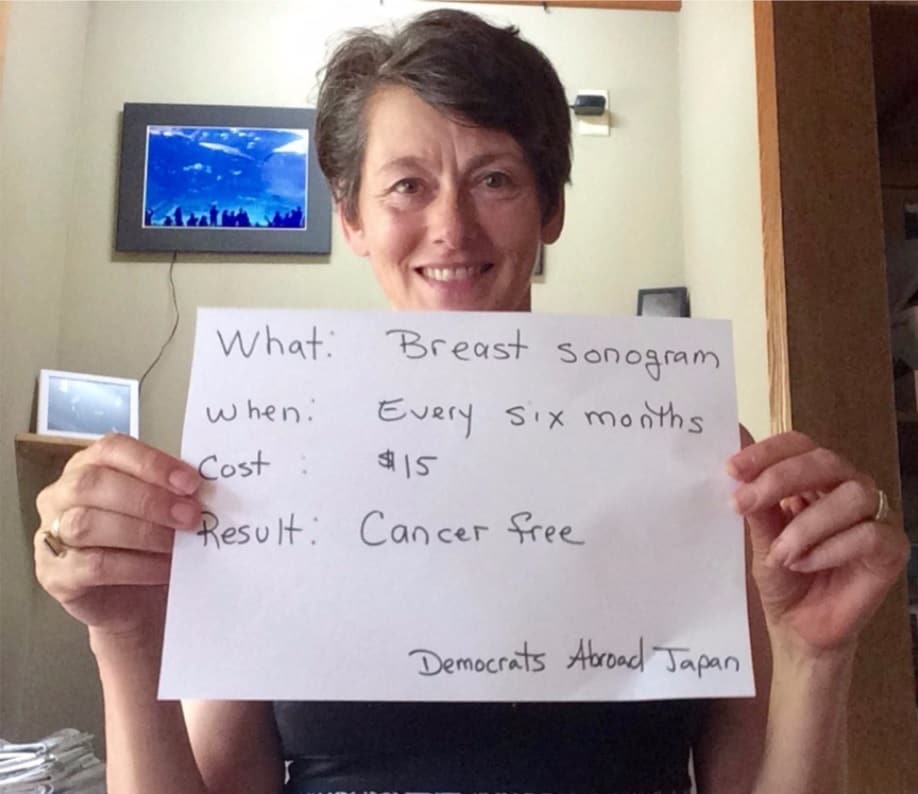 What: Breast sonogram
When: Every six months
Cost : $15
Result: Cancer free
Democrats Abroad Japan